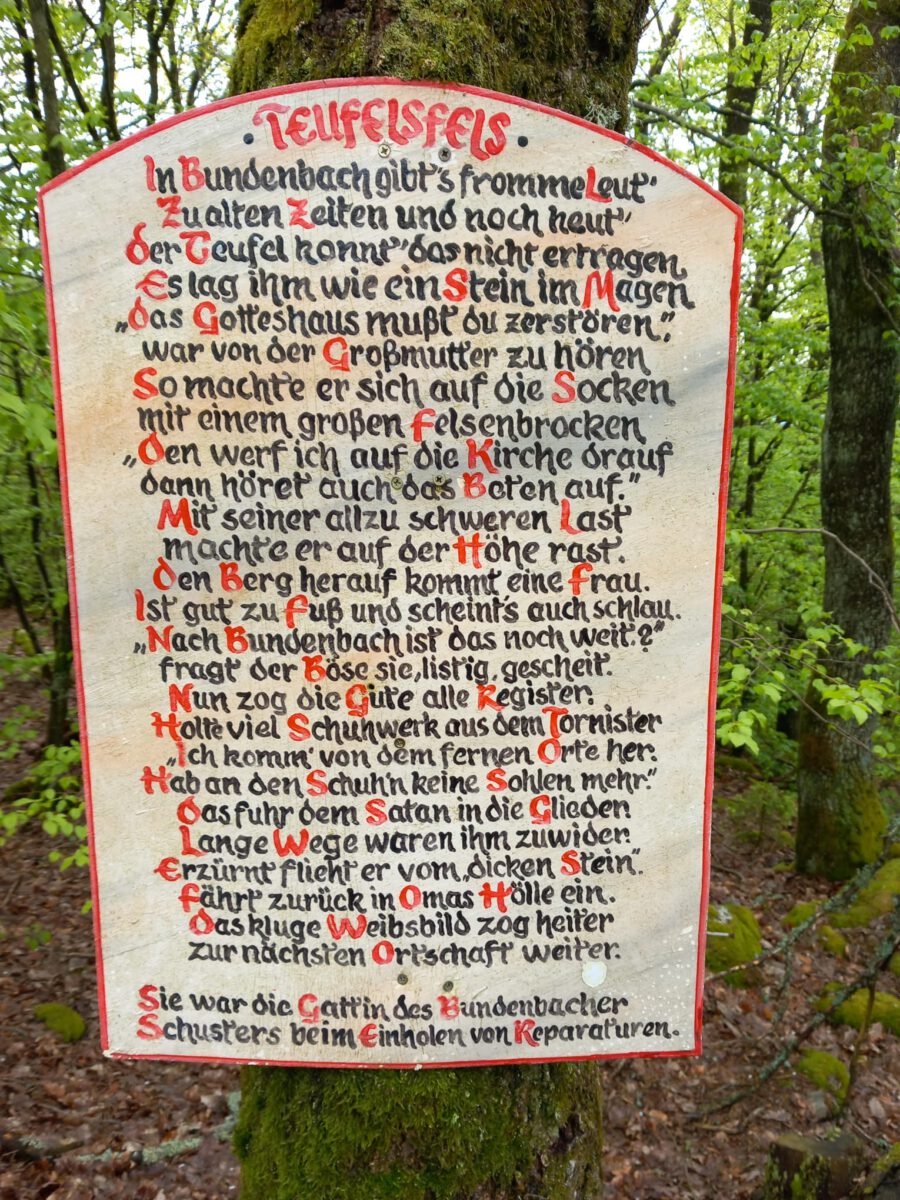 Teufelsfels
In Bundenbach gibt's fromme Leut'
Zu alten Zeiten und noch heut'
der Teufel konnt' das nicht ertragen
Es lag ihm wie ein Stein im Magen
„das Gotteshaus mußt du zerstören",
war von der Großmutter zu hören
So machte er sich auf die Socken
mit einem großen Felsenbrocken
„Den werf ich auf die Kirche drauf
dann höret auch das Beten auf."
Mit seiner allzu schweren Last
machte er auf der Höhe rast.
den Berg herauf kommt eine Frau.
Ist gut zu Fuß und scheint's auch schlau.
„Nach Bundenbach ist das noch weit?"
fragt der Böse sie, listig, gescheit.
Nun zog die Gute alle Register.
Holte viel Schuhwerk aus dem Tornister
„Ich komm' von dem fernen Orte her.
Hab an den Schuh'n keine Sohlen mehr."
das fuhr dem Satan in die Glieder.
Lange Wege waren ihm zuwider.
Erzürnt flieht er vom „dicken Stein".
fährt zurück in Omas Hölle ein.
das kluge Weibsbild zog heiter
zur nächsten Ortschaft weiter.
Sie war die Gattin des Bundenbacher
Schusters beim Einholen von Reparaturen.